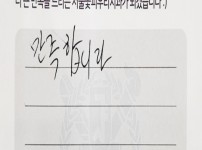 더 큰 만족을 드리는 서울꽃피부터치과가 되겠습니다 :)
만족합니다